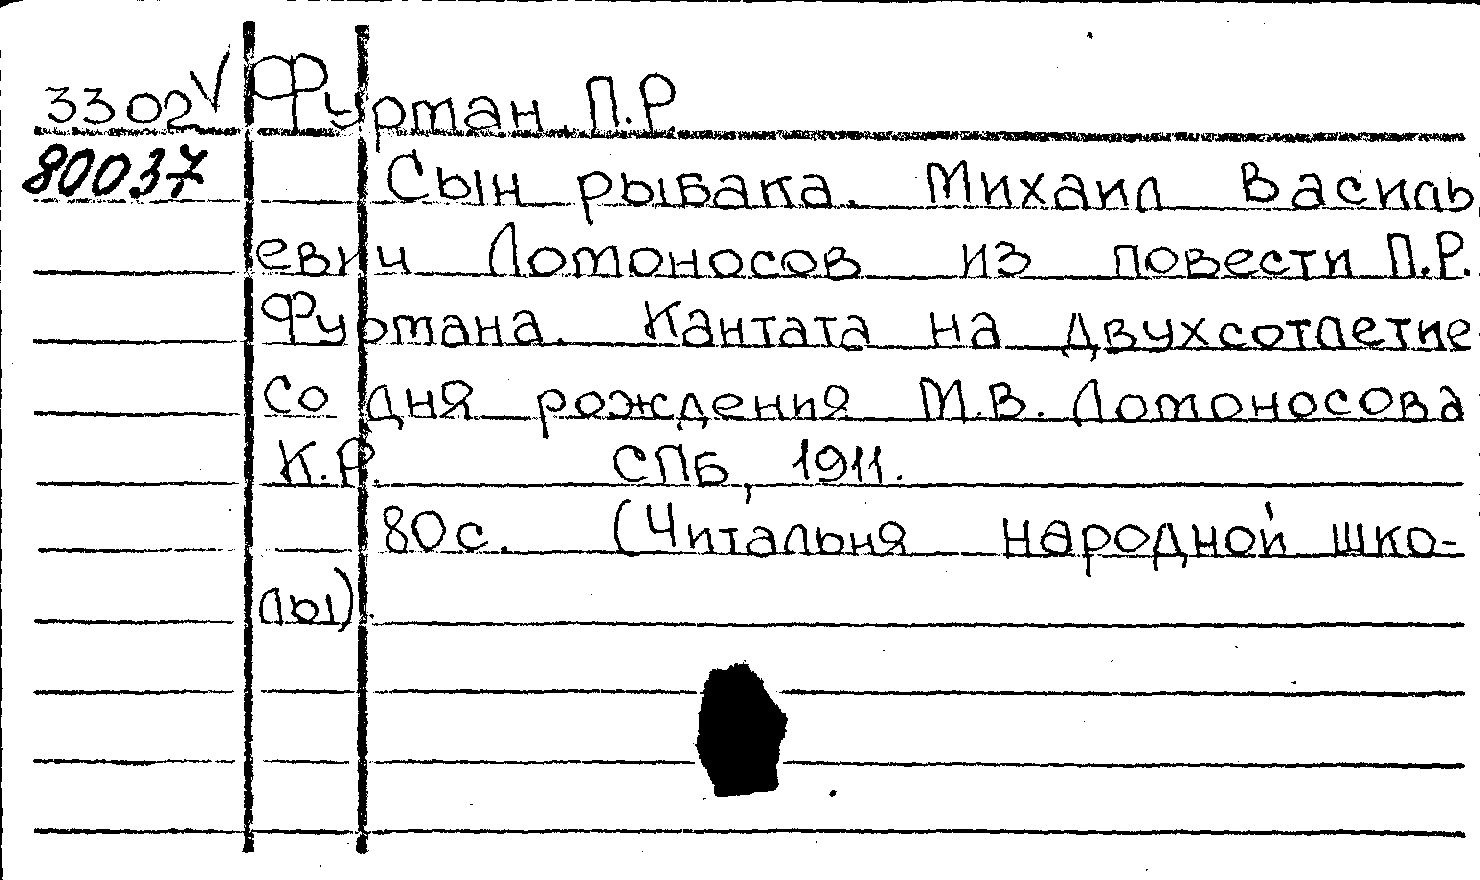 3302 √ Фурман П.Р.
80037 Сын рыбака. Михаил Василь
евич Ломоносов из повести П.Р.
Фурмана. Кантата на двухсотлетие
со дня рождения М.В. Ломоносова
К.Р. СПБ, 1911.
80с. (Читальня народной шко-
лы).